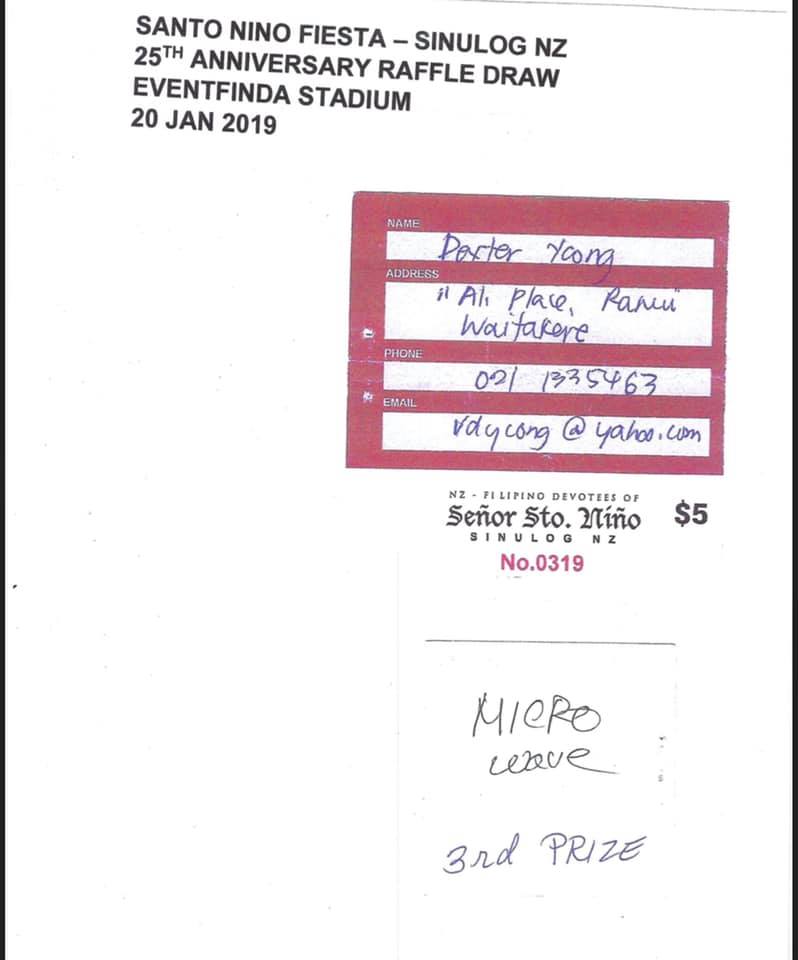 SANTO NINO FIESTA – SINULOG NZ
25TH ANNIVERSARY RAFFLE DRAW
EVENTFINDA STADIUM
20 JAN 2019
NAME
Dexter Ycong
ADDRESS
11 Ali Place, Ranui
Waitakere
PHONE
021 1335463
EMAIL
rdycong @ yahoo.com
NZ - FILIPINO DEVOTEES OF
Señor Sto. Niño
$5
SINULOG NZ
No.0319
MICRO
wave
3rd PRIZE